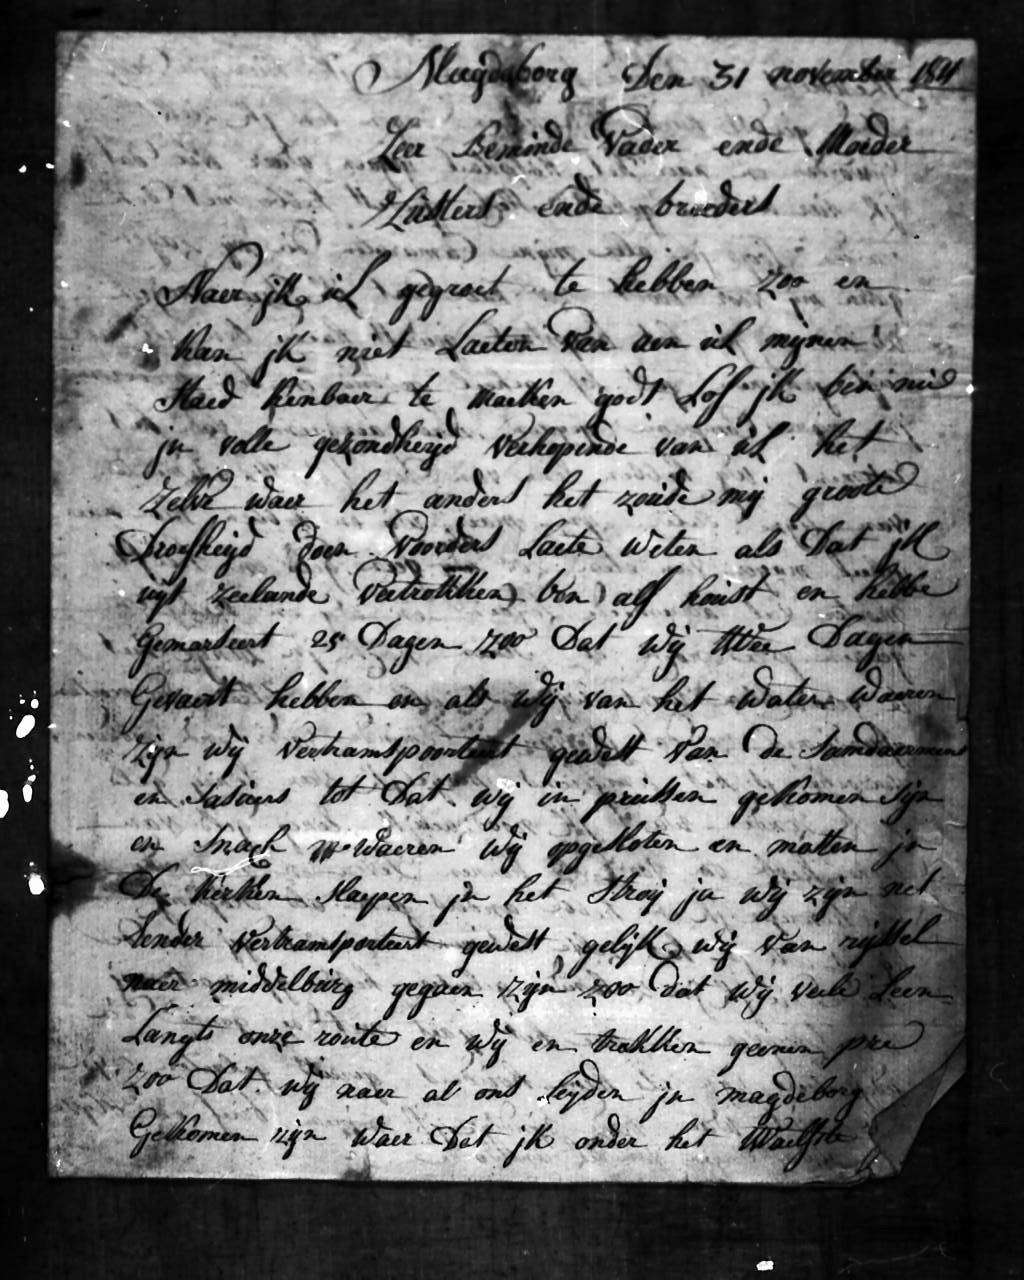 Magdaborg Den 31 november 1811
Zeer Beminde Vader ende Moeder
Zusters ende broeders
Naer jk ul gegroet te hebben zoo en
kan jk niet Laeten van aen ul mijnen
staed kenbaer te maeken godt Lof jk ben nu
jn volle gezondheijd verhopende van ul het
zelve waer het anders het zoude mij groote
Droefheijd doen voorders Laete weten als Dat jk
uyt zeelande vertrokken ben alf houst en hebbe
Gemarteert 25 Dagen zoo Dat wij twee Dagen
Gevaert hebben en als wij van het water waeren
zijn wij vertramspoorteert gewest van de Samdaermens
en tot Dat wij in pruissen gekomen sijn
en Snach waeren wij opgesloten en mosten jn
De kerken slaepen jn het stroij ja wij zijn net
Eender vertramsporteert gewest gelijk wij van rijssel
naer middelburg gegaen zijn zoo dat wij veele Leen
Langts onze route en wij en trokken geenen pre
zoo Dat wij naer al ons leijden jn magdeborg
Gekomen zijn waer Dat jk onder het